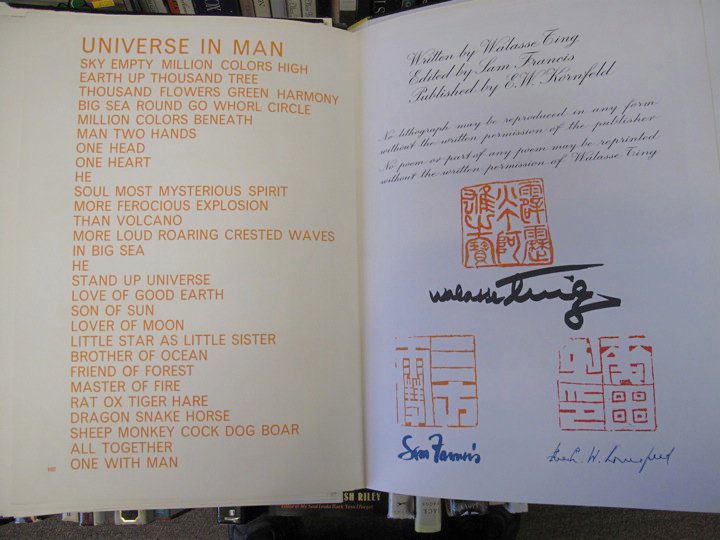 UNIVERSE IN MAN
SKY EMPTY MILLION COLORS HIGH
EARTH UP THOUSAND TREE
THOUSAND FLOWERS GREEN HARMONY
BIG SEA ROUND GO WHORL CIRCLE
MILLION COLORS BENEATH
MAN TWO HANDS
ONE HEAD
ONE HEART
HE
SOUL MOST MYSTERIOUS SPIRIT
MORE FEROCIOUS EXPLOSION
THAN VOLCANO
MORE LOUD ROARING CRESTED WAVES
IN BIG SEA
HE
STAND UP UNIVERSE
LOVE OF GOOD EARTH
SON OF SUN
LOVER OF MOON
LITTLE STAR AS LITTLE SISTER
BROTHER OF OCEAN
FRIEND OF FOREST
MASTER OF FIRE
RAT OX TIGER HARE
DRAGON SNAKE HORSE
SHEEP MONKEY COCK DOG BOAR
ALL TOGETHER
ONE WITH MAN
Written by Walasse Ting
Edited by Sam Francis
Published by E.W. Kornfeld
No lithograph may be reproduced in any form
without the written permission of the publisher
No poem or part of any poem may be reprinted
without the written permission of Walasse Ting
Walasse Ting
Sam Francis
SH RILEY